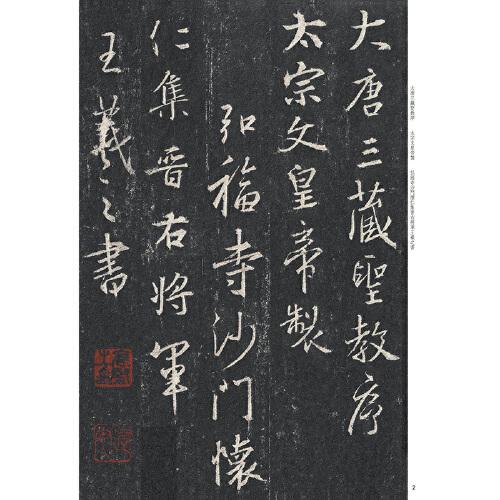 大唐三藏聖教序
太宗文皇帝製
弘福寺沙門懷
仁集晉右將軍
王羲之書
大唐三藏聖教序 太宗文皇帝製 弘福寺沙門懷仁集晉右將軍王羲之書
2